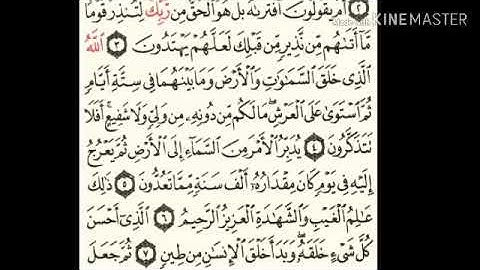 Made with KINEMASTER
٢ أَمْ يَقُولُونَ ٱفْتَرَىٰهُ بَلْ هُوَ ٱلْحَقُّ مِن رَّبِّكَ لِتُنذِرَ قَوْمًا
مَّآ أَتَىٰهُم مِّن نَّذِيرٍ مِّن قَبْلِكَ لَعَلَّهُمْ يَهْتَدُونَ ٣ ٱللَّهُ
ٱلَّذِى خَلَقَ ٱلسَّمَٰوَٰتِ وَٱلْأَرْضَ وَمَا بَيْنَهُمَا فِى سِتَّةِ أَيَّامٍ
ثُمَّ ٱسْتَوَىٰ عَلَى ٱلْعَرْشِ مَا لَكُم مِّن دُونِهِۦ مِن وَلِىٍّ وَلَا شَفِيعٍ أَفَلَا
تَتَذَكَّرُونَ ٤ يُدَبِّرُ ٱلْأَمْرَ مِنَ ٱلسَّمَآءِ إِلَى ٱلْأَرْضِ ثُمَّ يَعْرُجُ
إِلَيْهِ فِى يَوْمٍ كَانَ مِقْدَارُهُۥٓ أَلْفَ سَنَةٍ مِّمَّا تَعُدُّونَ ٥ ذَٰلِكَ
عَٰلِمُ ٱلْغَيْبِ وَٱلشَّهَٰدَةِ ٱلْعَزِيزُ ٱلرَّحِيمُ ٦ ٱلَّذِىٓ أَحْسَنَ
كُلَّ شَىْءٍ خَلَقَهُۥ وَبَدَأَ خَلْقَ ٱلْإِنسَٰنِ مِن طِينٍ ٧ ثُمَّ جَعَلَ